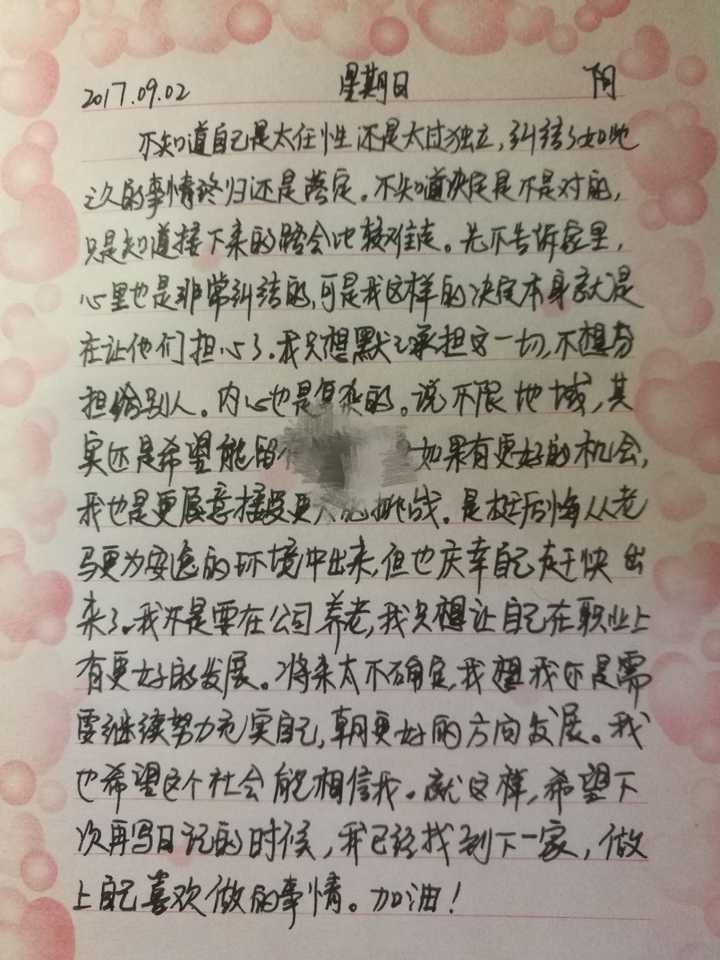 2017.09.02 星期日 阴
不知道自己是太任性还是太过独立,纠结了如此
之久的事情终归还是落定。不知道决定是不是对的,
只是知道接下来的路会比较难走。先不告诉家里,
心里也是非常纠结的,可是我这样的决定本身就是
在让他们担心了。我只想默默承担这一切,不想分
担给别人。内心也是复杂的。说不限地域,其
实还是希望能留 如果有更好的机会,
我也是更愿意接受更大的挑战。是挺后悔从老
马更为安逸的环境中出来,但也庆幸自己赶快出
来了。我不是要在公司养老,我只想让自己在职业上
有更好的发展。将来太不确定,我想我还是需
要继续努力充实自己,朝更好的方向发展。我
也希望这个社会能相信我。就这样,希望下
次再写日记的时候,我已经找到下一家,做
上自己喜欢做的事情。加油!